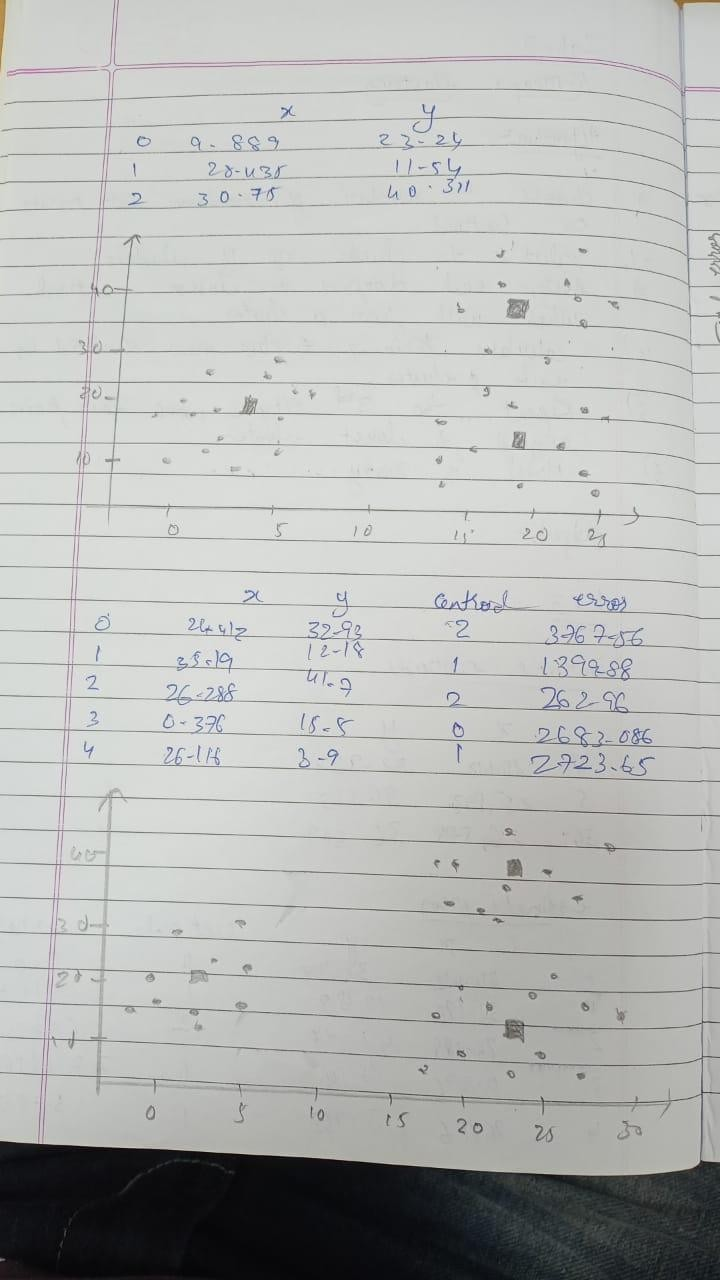 x y
0 9.889 23.24
1 28.435 11.54
2 30.75 40.311
40
30
20
10
0 5 10 15 20 25
x y centroid error
0 24.412 32.93 2 3767.56
1 35.19 12.18 1 1399.88
2 26.288 41.7 2 262.96
3 0.376 15.5 0 2683.086
4 26.116 3.9 1 2723.65
40
30
20
10
0 5 10 15 20 25 30